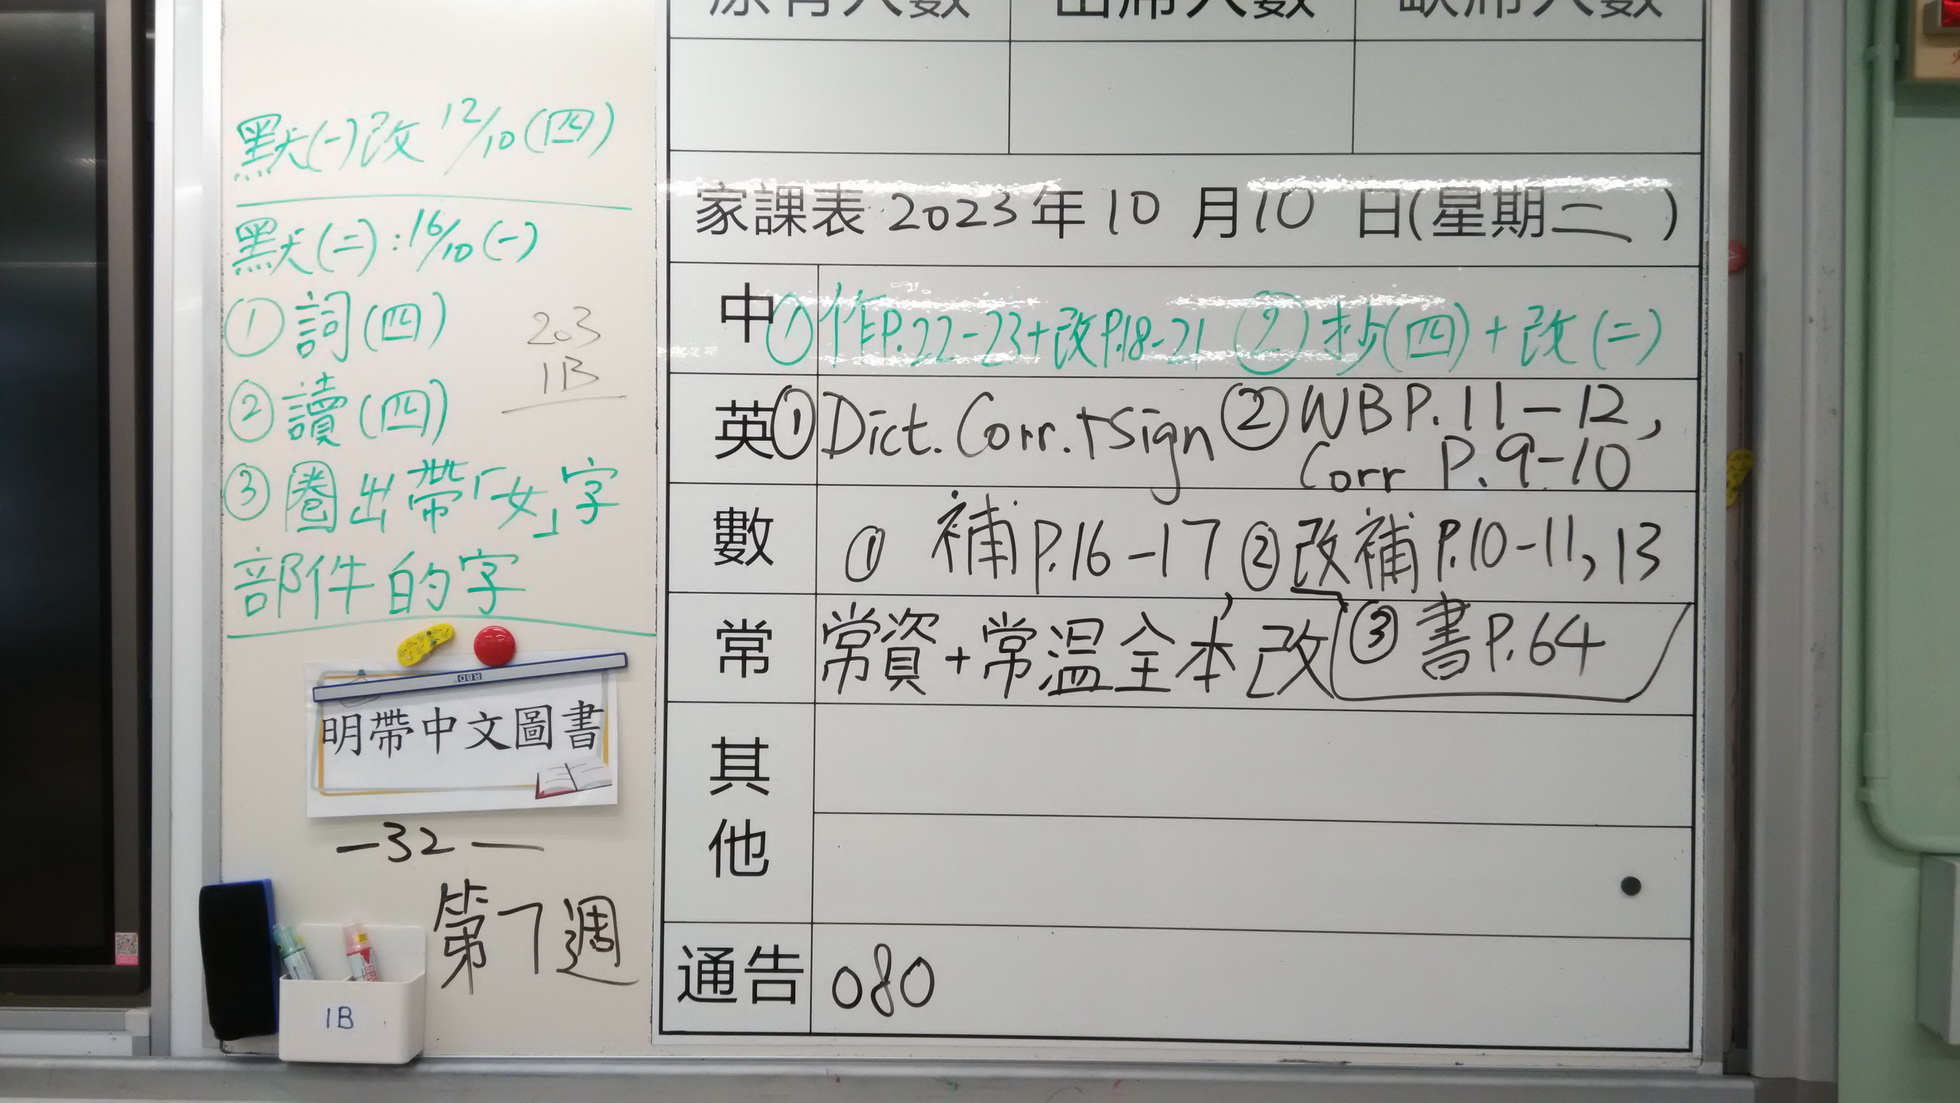 默(一)改 12/10(四)
默(二):16/10(一)
①詞(四)
②讀(四)
③圈出帶「女」字
部件的字
203
1B
明帶中文圖書
—32—
第7週
1B
原有人數 出席人數 缺席人數
家課表 2023年10月10日(星期二)
中 ①作P.22-23+改P.18-21 ②抄(四)+改(二)
英 ①Dict. Corr.+Sign ②WB P.11-12,
Corr P.9-10
數 ① 補P.16-17, ②改補P.10-11,13
③書P.64
常 常資+常溫全本改
其他
通告 080